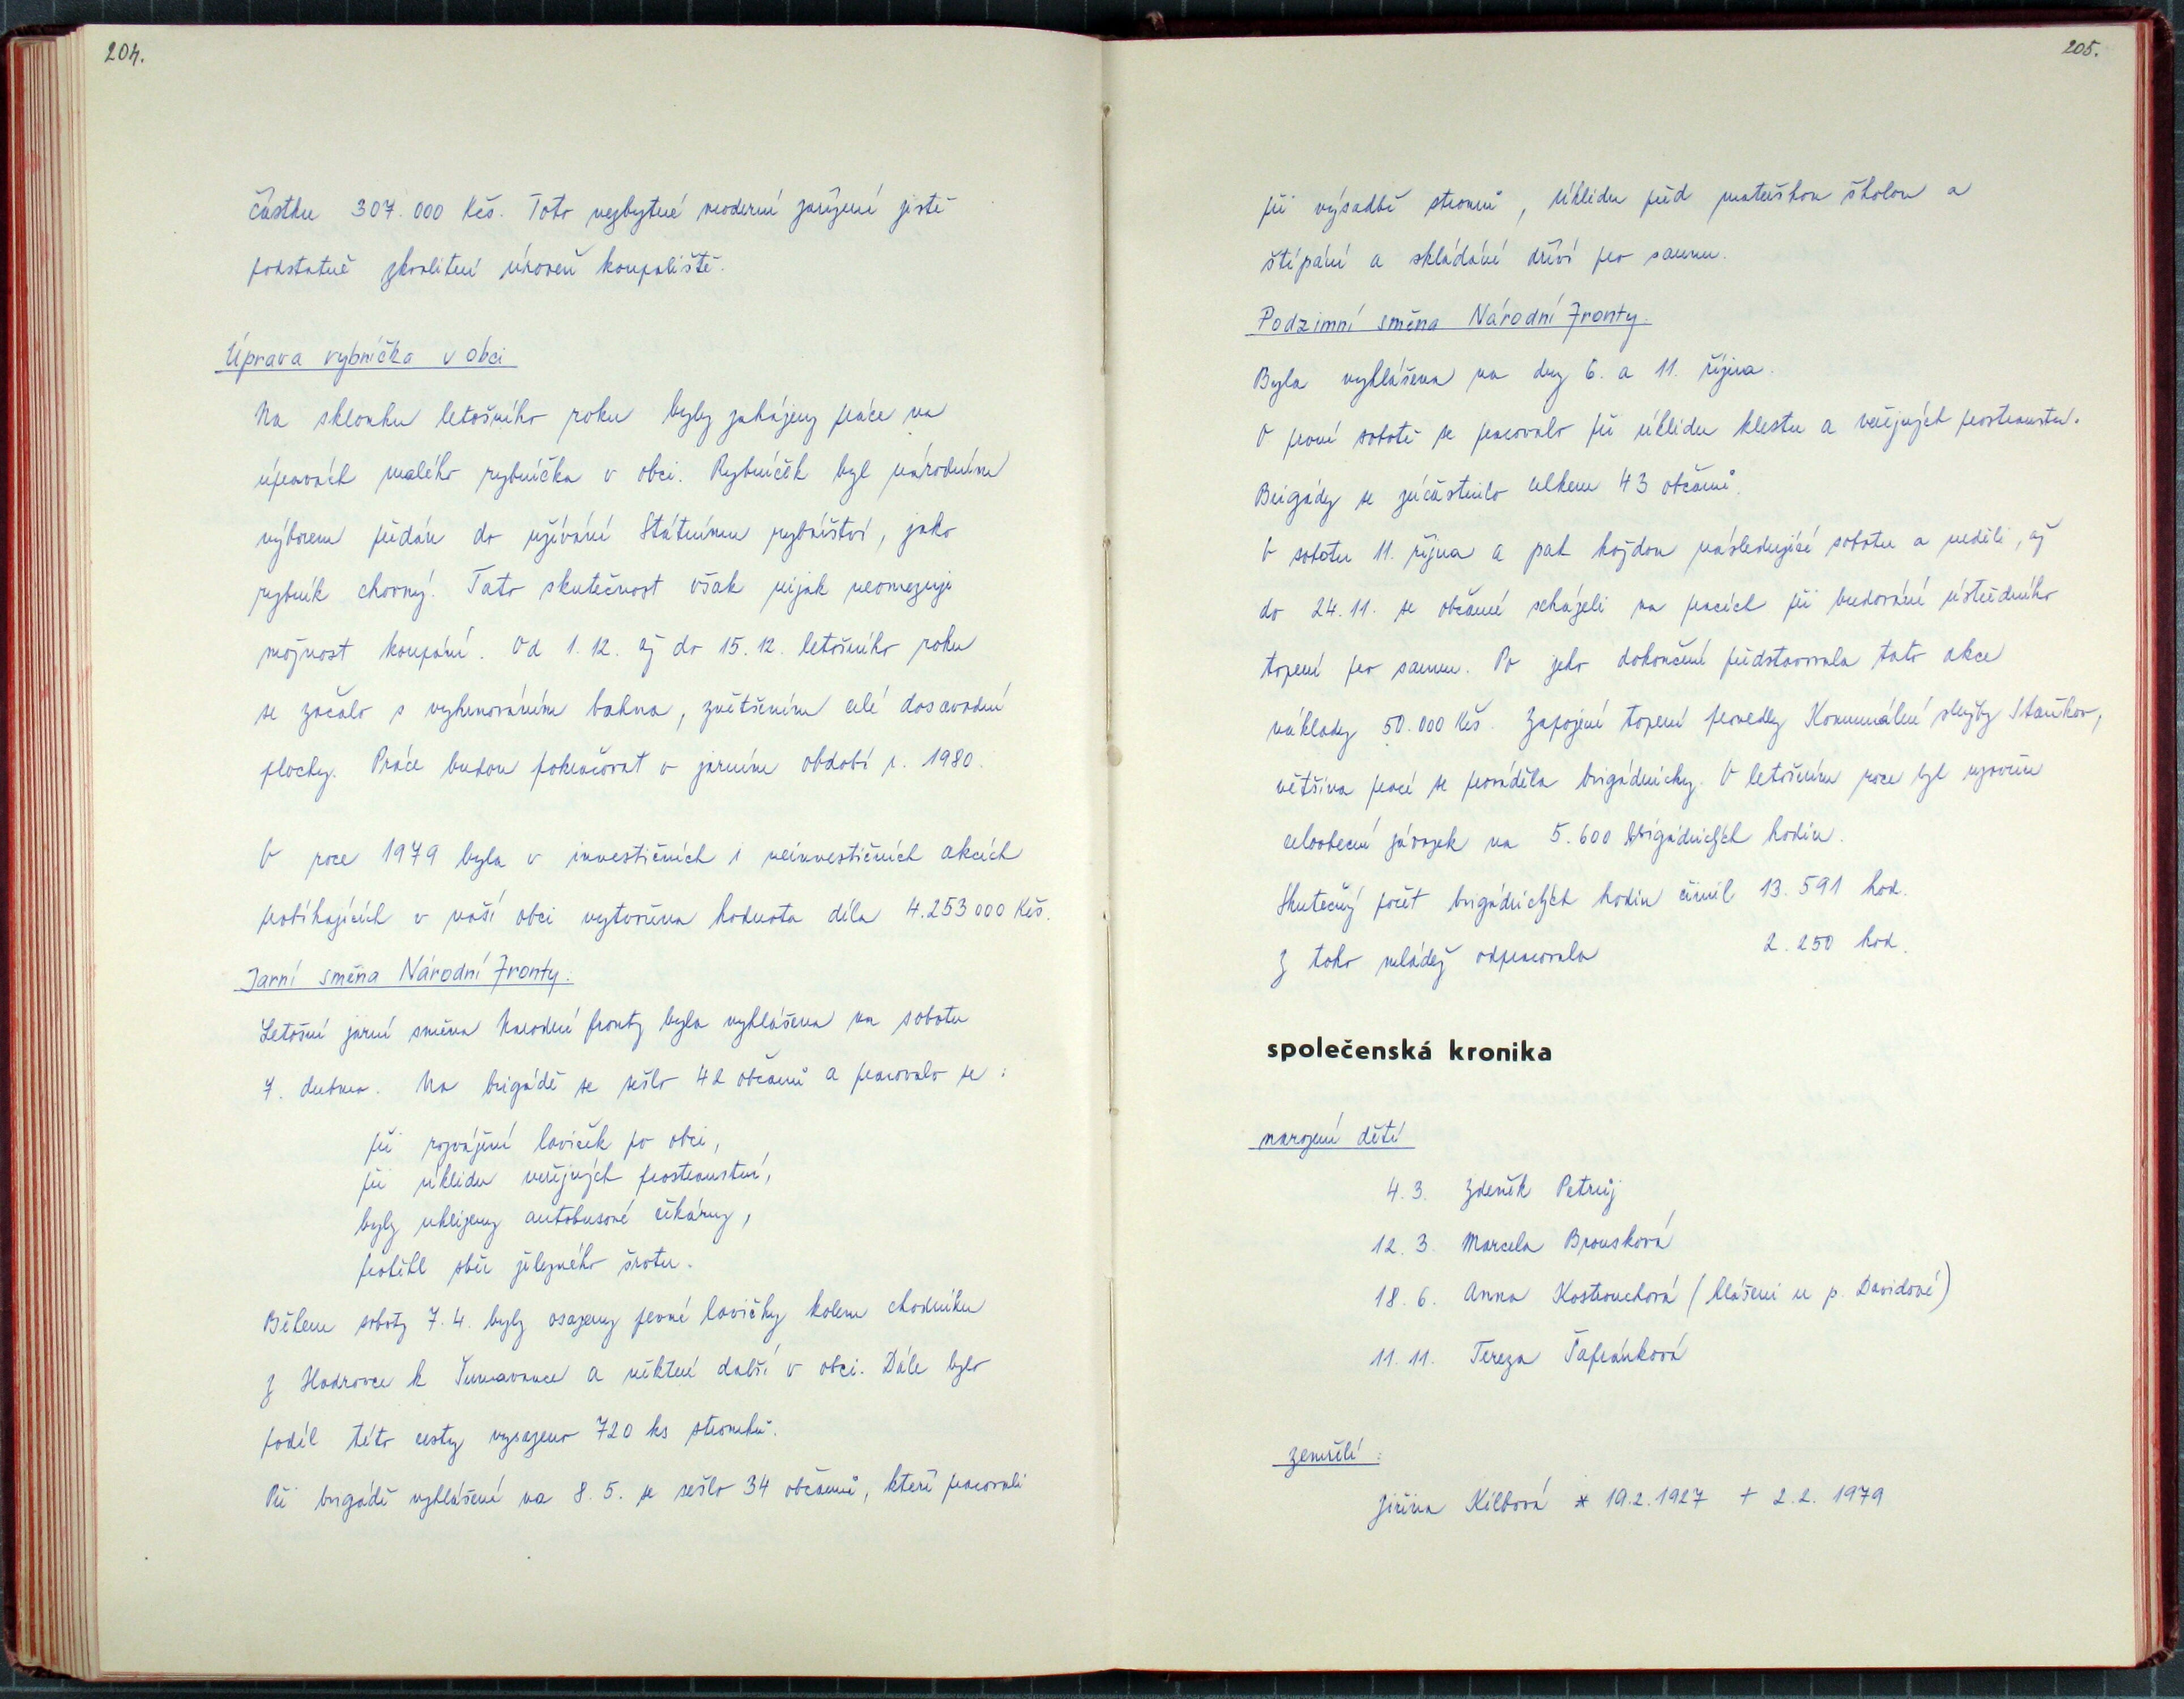 204.
částku 307.000 Kčs. Toto nezbytné moderní zařízení jistě
podstatně zkvalitní úroveň koupaliště.
Úprava rybníčka v obci
Na sklonku letošního roku byly zahájeny práce na
úpravách malého rybníčka v obci. Rybníček byl národním
výborem předán do užívání Státnímu rybářství, jako
rybník chovný. Tato skutečnost však nijak neomezuje
možnost koupání. Od 1.12. až do 15.12. letošního roku
se začalo s vyhrnováním bahna, zvětšením celé dosavadní
plochy. Práce budou pokračovat v jarním období r. 1980.
V roce 1979 byla v investičních i neinvestičních akcích
probíhajících v naší obci vytvořena hodnota díla 4.253 000 Kčs.
Jarní směna Národní Fronty.
Letošní jarní směna Národní fronty byla vyhlášena na sobotu
7. dubna. Na brigádě se sešlo 42 občanů a pracovalo se:
při rozvážení laviček po obci,
při úklidu veřejných prostranství,
byly uklizeny autobusové čekárny,
proběhl sběr železného šrotu.
Během soboty 7.4. byly osazeny pevné lavičky kolem chodníku
z Hadrovce k Šumavance a některé další v obci. Dále bylo
podél této cesty vysazeno 720 ks stromků.
Při brigádě vyhlášené na 8.5. se sešlo 34 občanů, kteří pracovali
205.
při výsadbě stromů, úklidu před mateřskou školou a
štípání a skládání dříví pro saunu.
Podzimní směna Národní Fronty.
Byla vyhlášena na dny 6. a 11. října.
V první sobotě se pracovalo při úklidu klestu a veřejných prostranství.
Brigády se zúčastnilo celkem 43 občanů.
V sobotu 11. října a pak každou následující sobotu a neděli, až
do 24.11. se občané scházeli na pracích při budování ústředního
topení pro saunu. Po jeho dokončení představovala tato akce
náklady 50.000 Kčs. Zapojení topení provedly Komunální služby Staňkov,
většina prací se prováděla brigádnicky. V letošním roce byl uzavřen
celoobecní závazek na 5.600 brigádnických hodin.
Skutečný počet brigádnických hodin činil 13.591 hod.
Z toho mládež odpracovala 2.250 hod.
společenská kronika
narození dětí
4.3. Zdeněk Petruj
12.3. Marcela Brousková
18.6. Anna Kostrouchová (hlášeni u p. Davidové)
11.11. Tereza Tafránková
zemřelí:
Jiřina Kilbová * 19.2.1927 + 2.2. 1979